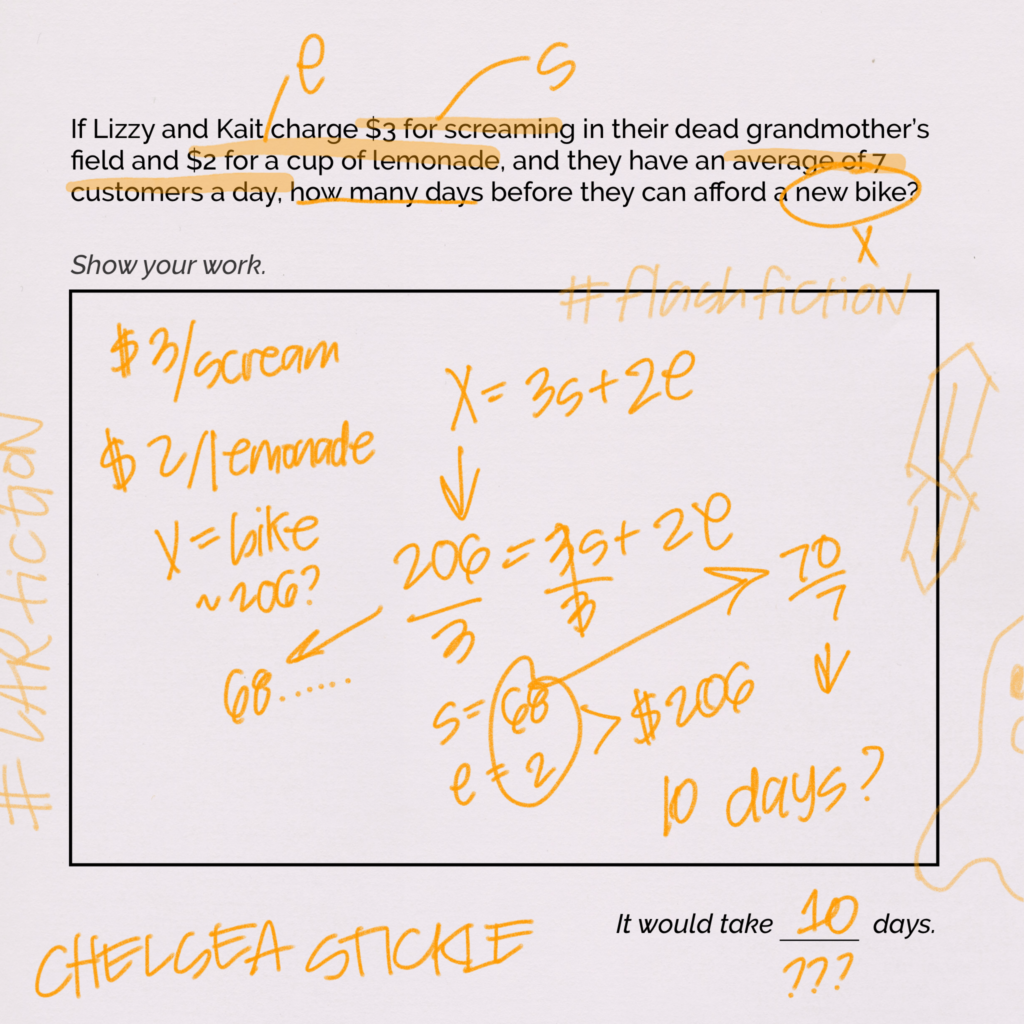 e s
If Lizzy and Kait charge $3 for screaming in their dead grandmother's
field and $2 for a cup of lemonade, and they have an average of 7
customers a day, how many days before they can afford a new bike?
X
Show your work.
#flashfiction
$3/scream
X = 3s + 2e
$2/lemonade
X = bike
~206?
206 = 3s + 2e
3 3
70
7
68......
s = 68
e = 2
> $206
10 days?
#LARfiction
It would take 10 days.
???
CHELSEA STICKLE